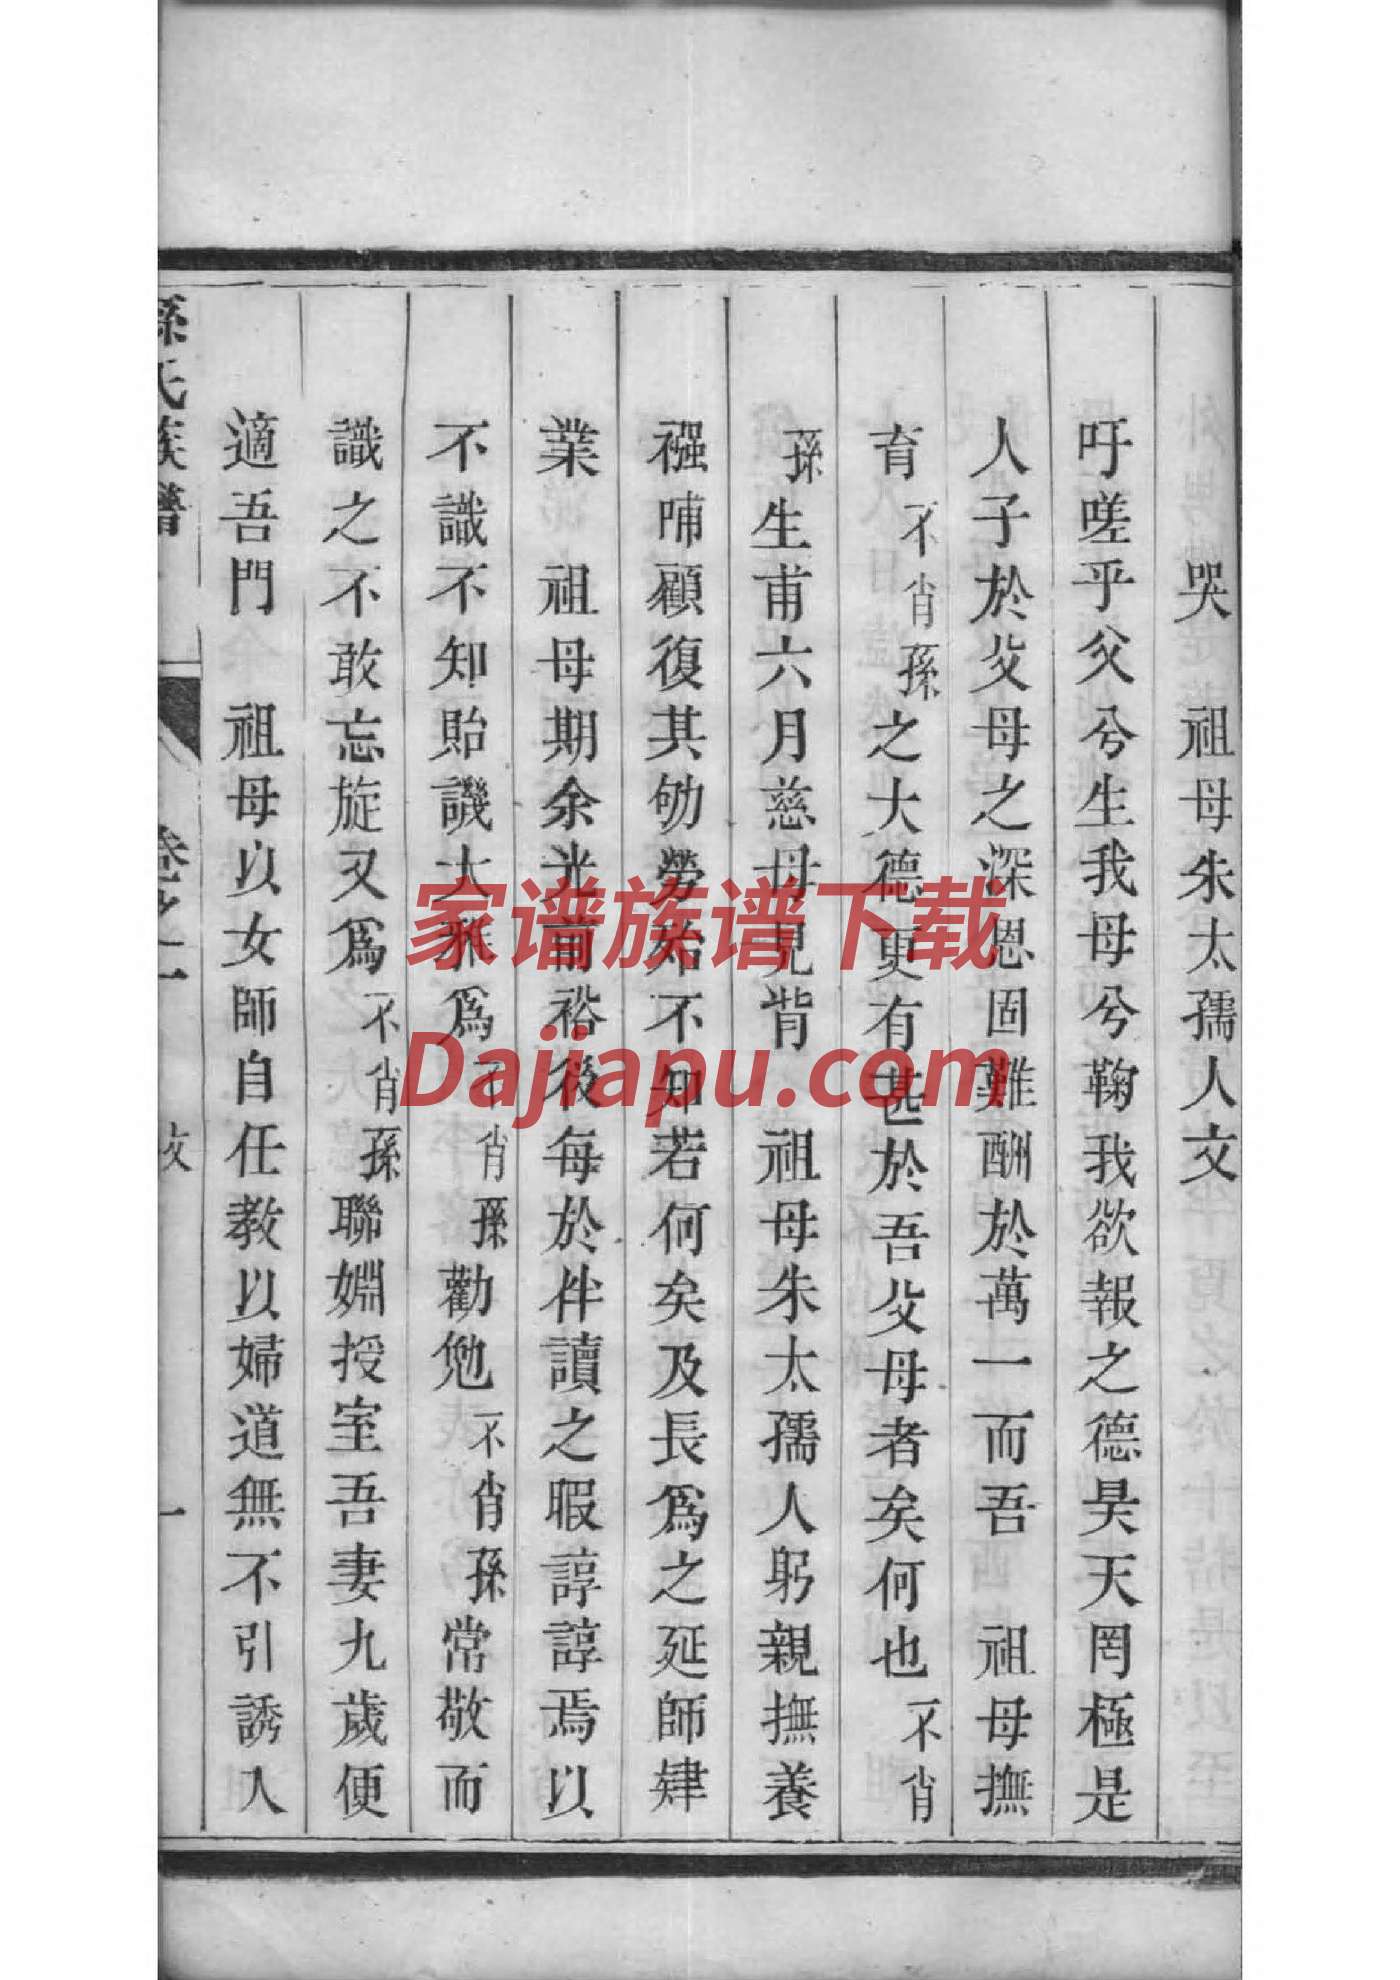 哭　祖母朱太孺人文
吁嗟乎父兮生我母兮鞠我欲報之德昊天罔極是
人子於父母之深恩固難酬於萬一而吾　祖母撫
育不肖孫之大德更有甚於吾父母者矣何也不肖
孫生甫六月慈母見背　祖母朱太孺人躬親撫養
襁哺顧復其劬勞殆不知若何矣及長爲之延師肄
業　祖母期余光前裕後每於伴讀之暇諄諄焉以
不識不知貽譏大雅爲不肖孫勸勉不肖孫常敬而
識之不敢忘旋又爲不肖孫聯姻授室吾妻九歲便
適吾門　祖母以女師自任教以婦道無不引誘入
孫氏族譜　卷之一　文　一
家谱族谱下载
Dajiapu.com